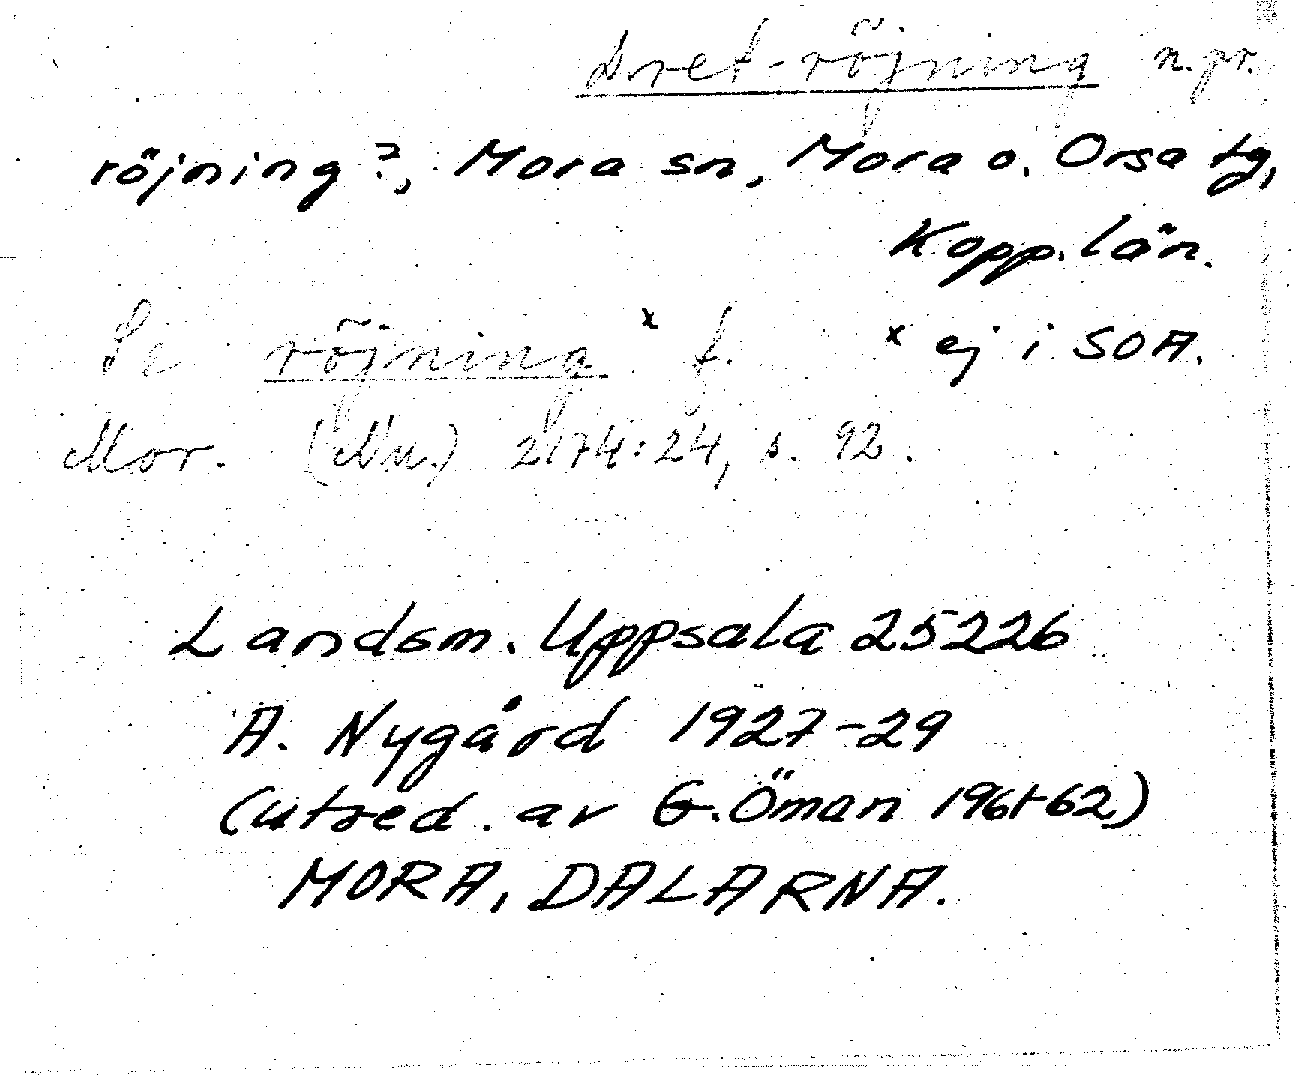 Dret-röjning n.pr.
röjning?, Mora sn, Mora o. Orsa tg,
Kopp. län.
Se röjning x f. x ej i SOA.
Mor. (Nu.) 2174:24, s. 92.
Landsm. Uppsala 25226
A. Nygård 1927-29
(utred. av G. Öman 1961-62)
MORA, DALARNA.